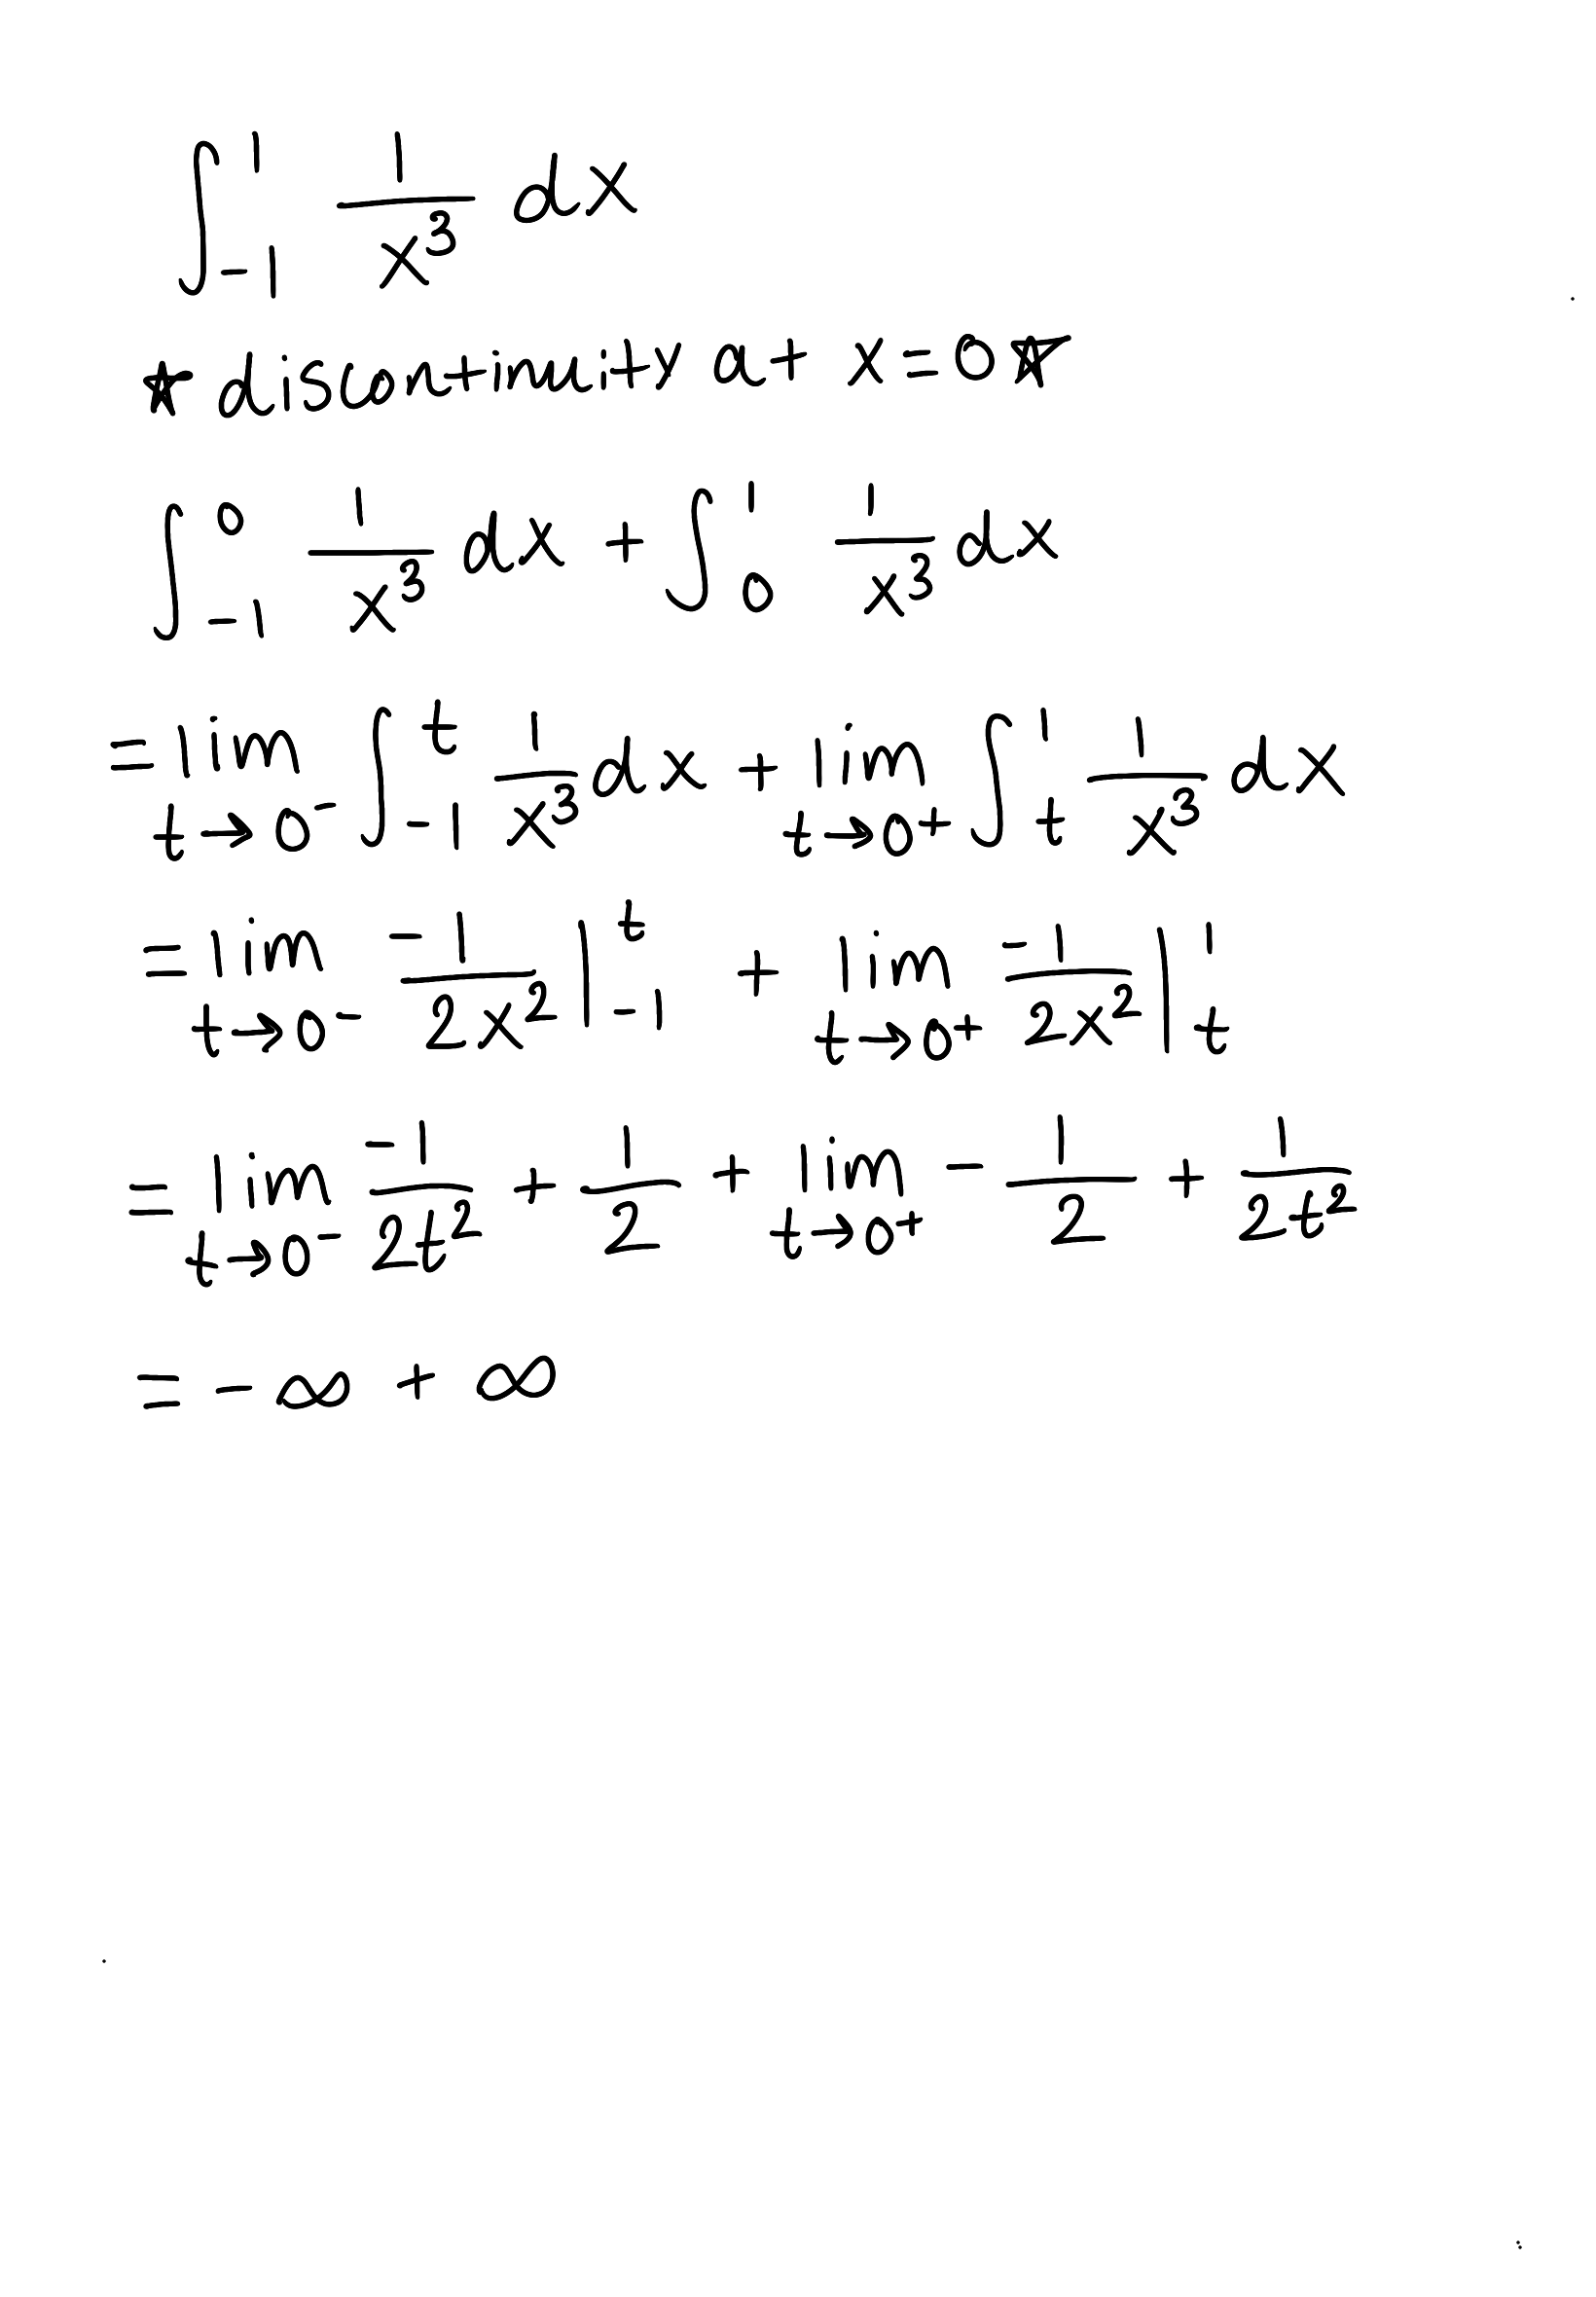 ∫_{-1}^{1} 1/x³ dx
☆ discontinuity at x=0 ☆
∫_{-1}^{0} 1/x³ dx + ∫_{0}^{1} 1/x³ dx
= lim_{t→0⁻} ∫_{-1}^{t} 1/x³ dx + lim_{t→0⁺} ∫_{t}^{1} 1/x³ dx
= lim_{t→0⁻} -1/2x² |_{-1}^{t} + lim_{t→0⁺} -1/2x² |_{t}^{1}
= lim_{t→0⁻} -1/2t² + 1/2 + lim_{t→0⁺} - 1/2 + 1/2t²
= -∞ + ∞